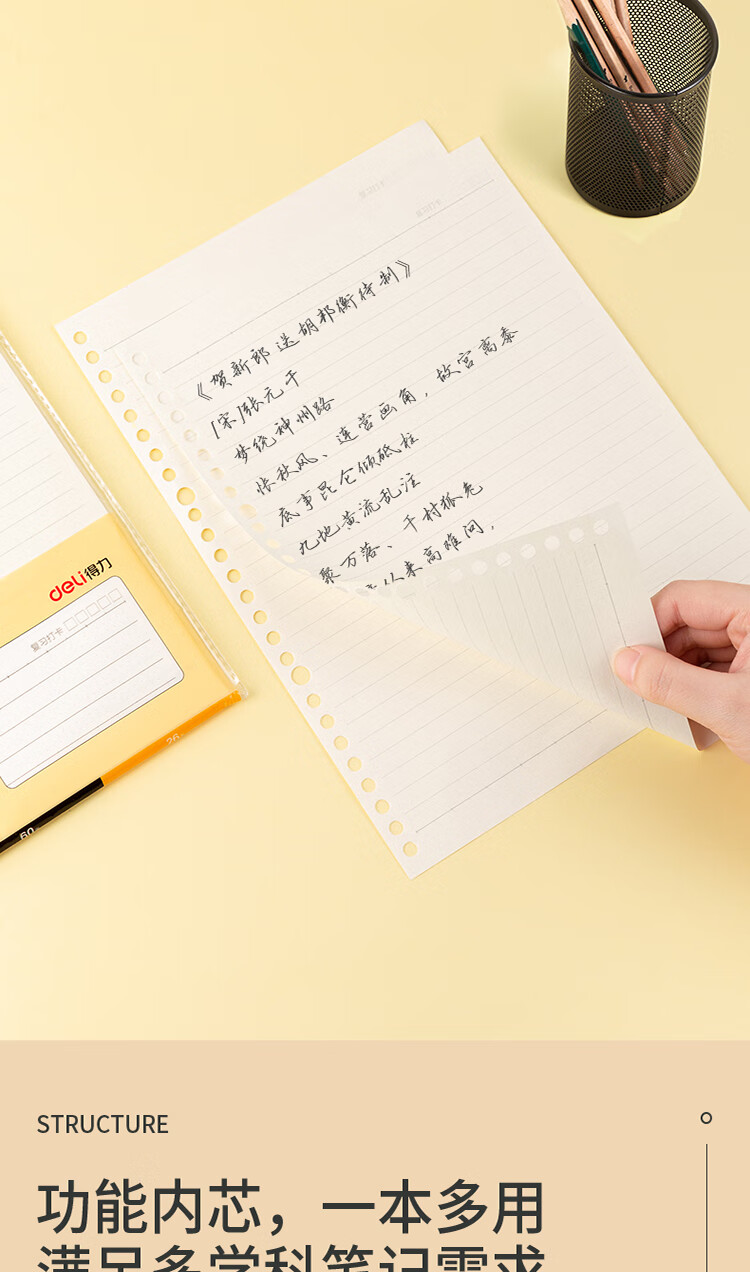 《贺新郎 送胡邦衡待制》
[宋]张元干
梦绕神州路
怅秋风、连营画角，故宫离黍
底事昆仑倾砥柱
九地黄流乱注
聚万落、千村狐兔
意从来高难问，
deli得力
复习打卡
26
60
STRUCTURE
功能内芯，一本多用
满足多学科笔记需求